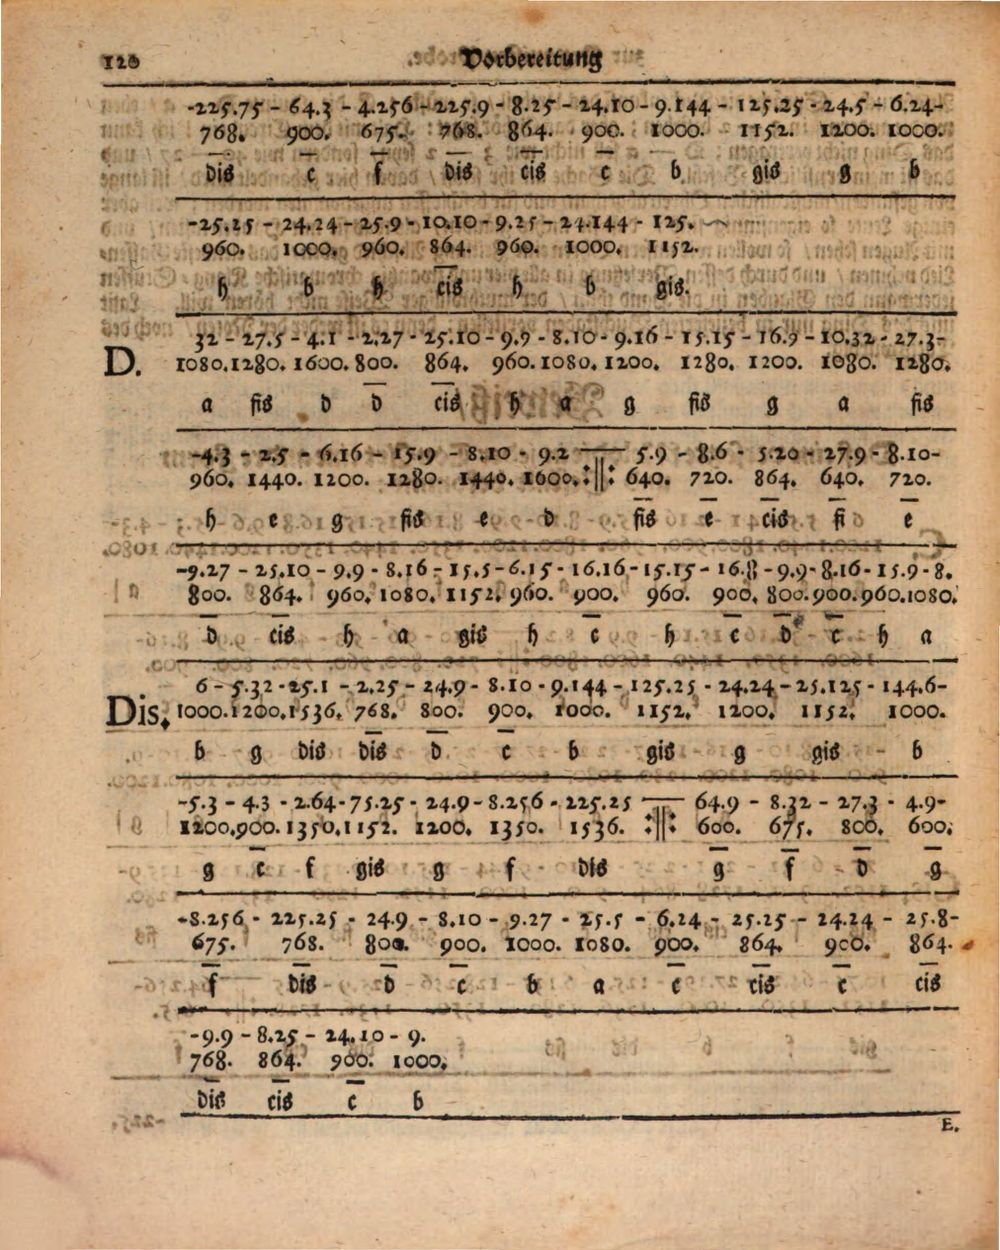 120 Vorbereitung
-225.75 - 64.3 - 4.256 - 225.9 - 8.25 - 24.10 - 9.144 - 125.25 - 24.5 - 6.24-
768. 900. 675. 768. 864. 900. 1000. 1152. 1200. 1000.
d̅i̅s̅ c̅ f̅ d̅i̅s̅ c̅i̅s̅ c̅ b gis g b
-25.25 - 24.24 - 25.9 - 10.10 - 9.25 - 24.144 - 125.
960. 1000. 960. 864. 960. 1000. 1152.
h b h c̅i̅s̅ h b gis.
32 - 27.5 - 4.1 - 2.27 - 25.10 - 9.9 - 8.10 - 9.16 - 15.15 - 16.9 - 10.32 - 27.3-
D. 1080.1280. 1600. 800. 864. 960. 1080. 1200. 1280. 1200. 1080. 1280.
a fis d d̅ c̅i̅s̅ h a g fis g a fis
-4.3 - 2.5 - 6.16 - 15.9 - 8.10 - 9.2 :||: 5.9 - 8.6 - 5.20 - 27.9 - 8.10-
960. 1440. 1200. 1280. 1440. 1600. 640. 720. 864. 640. 720.
h e g fis e d f̅i̅s̅ e̅ c̅i̅s̅ f̅i̅ e̅
-9.27 - 25.10 - 9.9 - 8.16 - 15.5 - 6.15 - 16.16 - 15.15 - 16.8 - 9.9 - 8.16 - 15.9 - 8.
800. 864. 960. 1080. 1152. 960. 900. 960. 900. 800. 900. 960. 1080.
d̅ c̅i̅s̅ h a gis h c̅ h c̅ d̅ c̅ h a
6 - 5.32 - 25.1 - 2.25 - 24.9 - 8.10 - 9.144 - 125.25 - 24.24 - 25.125 - 144.6-
Dis. 1000.1200.1536. 768. 800. 900. 1000. 1152. 1200. 1152. 1000.
b g dis d̅i̅s̅ d̅ c̅ b gis g gis b
-5.3 - 4.3 - 2.64 - 75.25 - 24.9 - 8.256 - 225.25 :||: 64.9 - 8.32 - 27.3 - 4.9-
1200.900. 1350.1152. 1200. 1350. 1536. 600. 675. 800. 600.
g c̅ f gis g f dis g̅ f̅ d̅ g̅
-8.256 - 225.25 - 24.9 - 8.10 - 9.27 - 25.5 - 6.24 - 25.25 - 24.24 - 25.8-
675. 768. 800. 900. 1000. 1080. 900. 864. 900. 864.
f̅ d̅i̅s̅ d̅ c̅ b a c̅ c̅i̅s̅ c̅ c̅i̅s̅
-9.9 - 8.25 - 24.10 - 9.
768. 864. 900. 1000.
d̅i̅s̅ c̅i̅s̅ c̅ b
E.